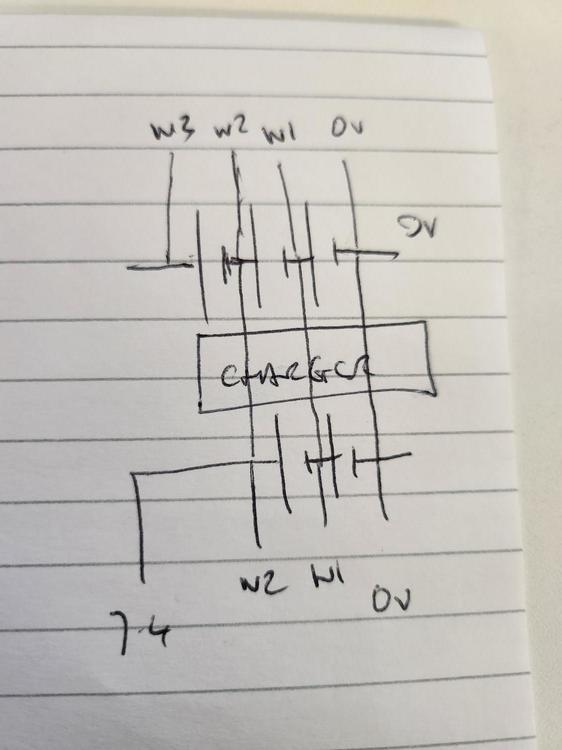 W3 W2 W1 0V
0V
CHARGER
W2 W1 0V
7.4